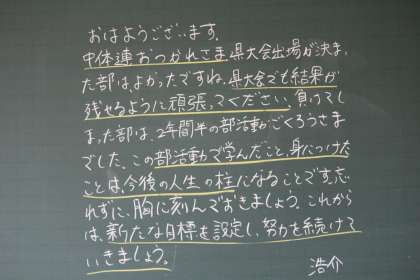 おはようございます。
中体連おつかれさま。県大会出場が決まっ
た部はよかったですね。県大会でも結果が
残せるように頑張ってください。負けてし
まった部は、2年間半の部活動がごくろうさま
でした。この部活動で学んだこと、身につけた
ことは今後の人生の柱になることです。忘
れずに、胸に刻んでおきましょう。これから
は、新たな目標を設定し、努力を続けて
いきましょう。
浩介